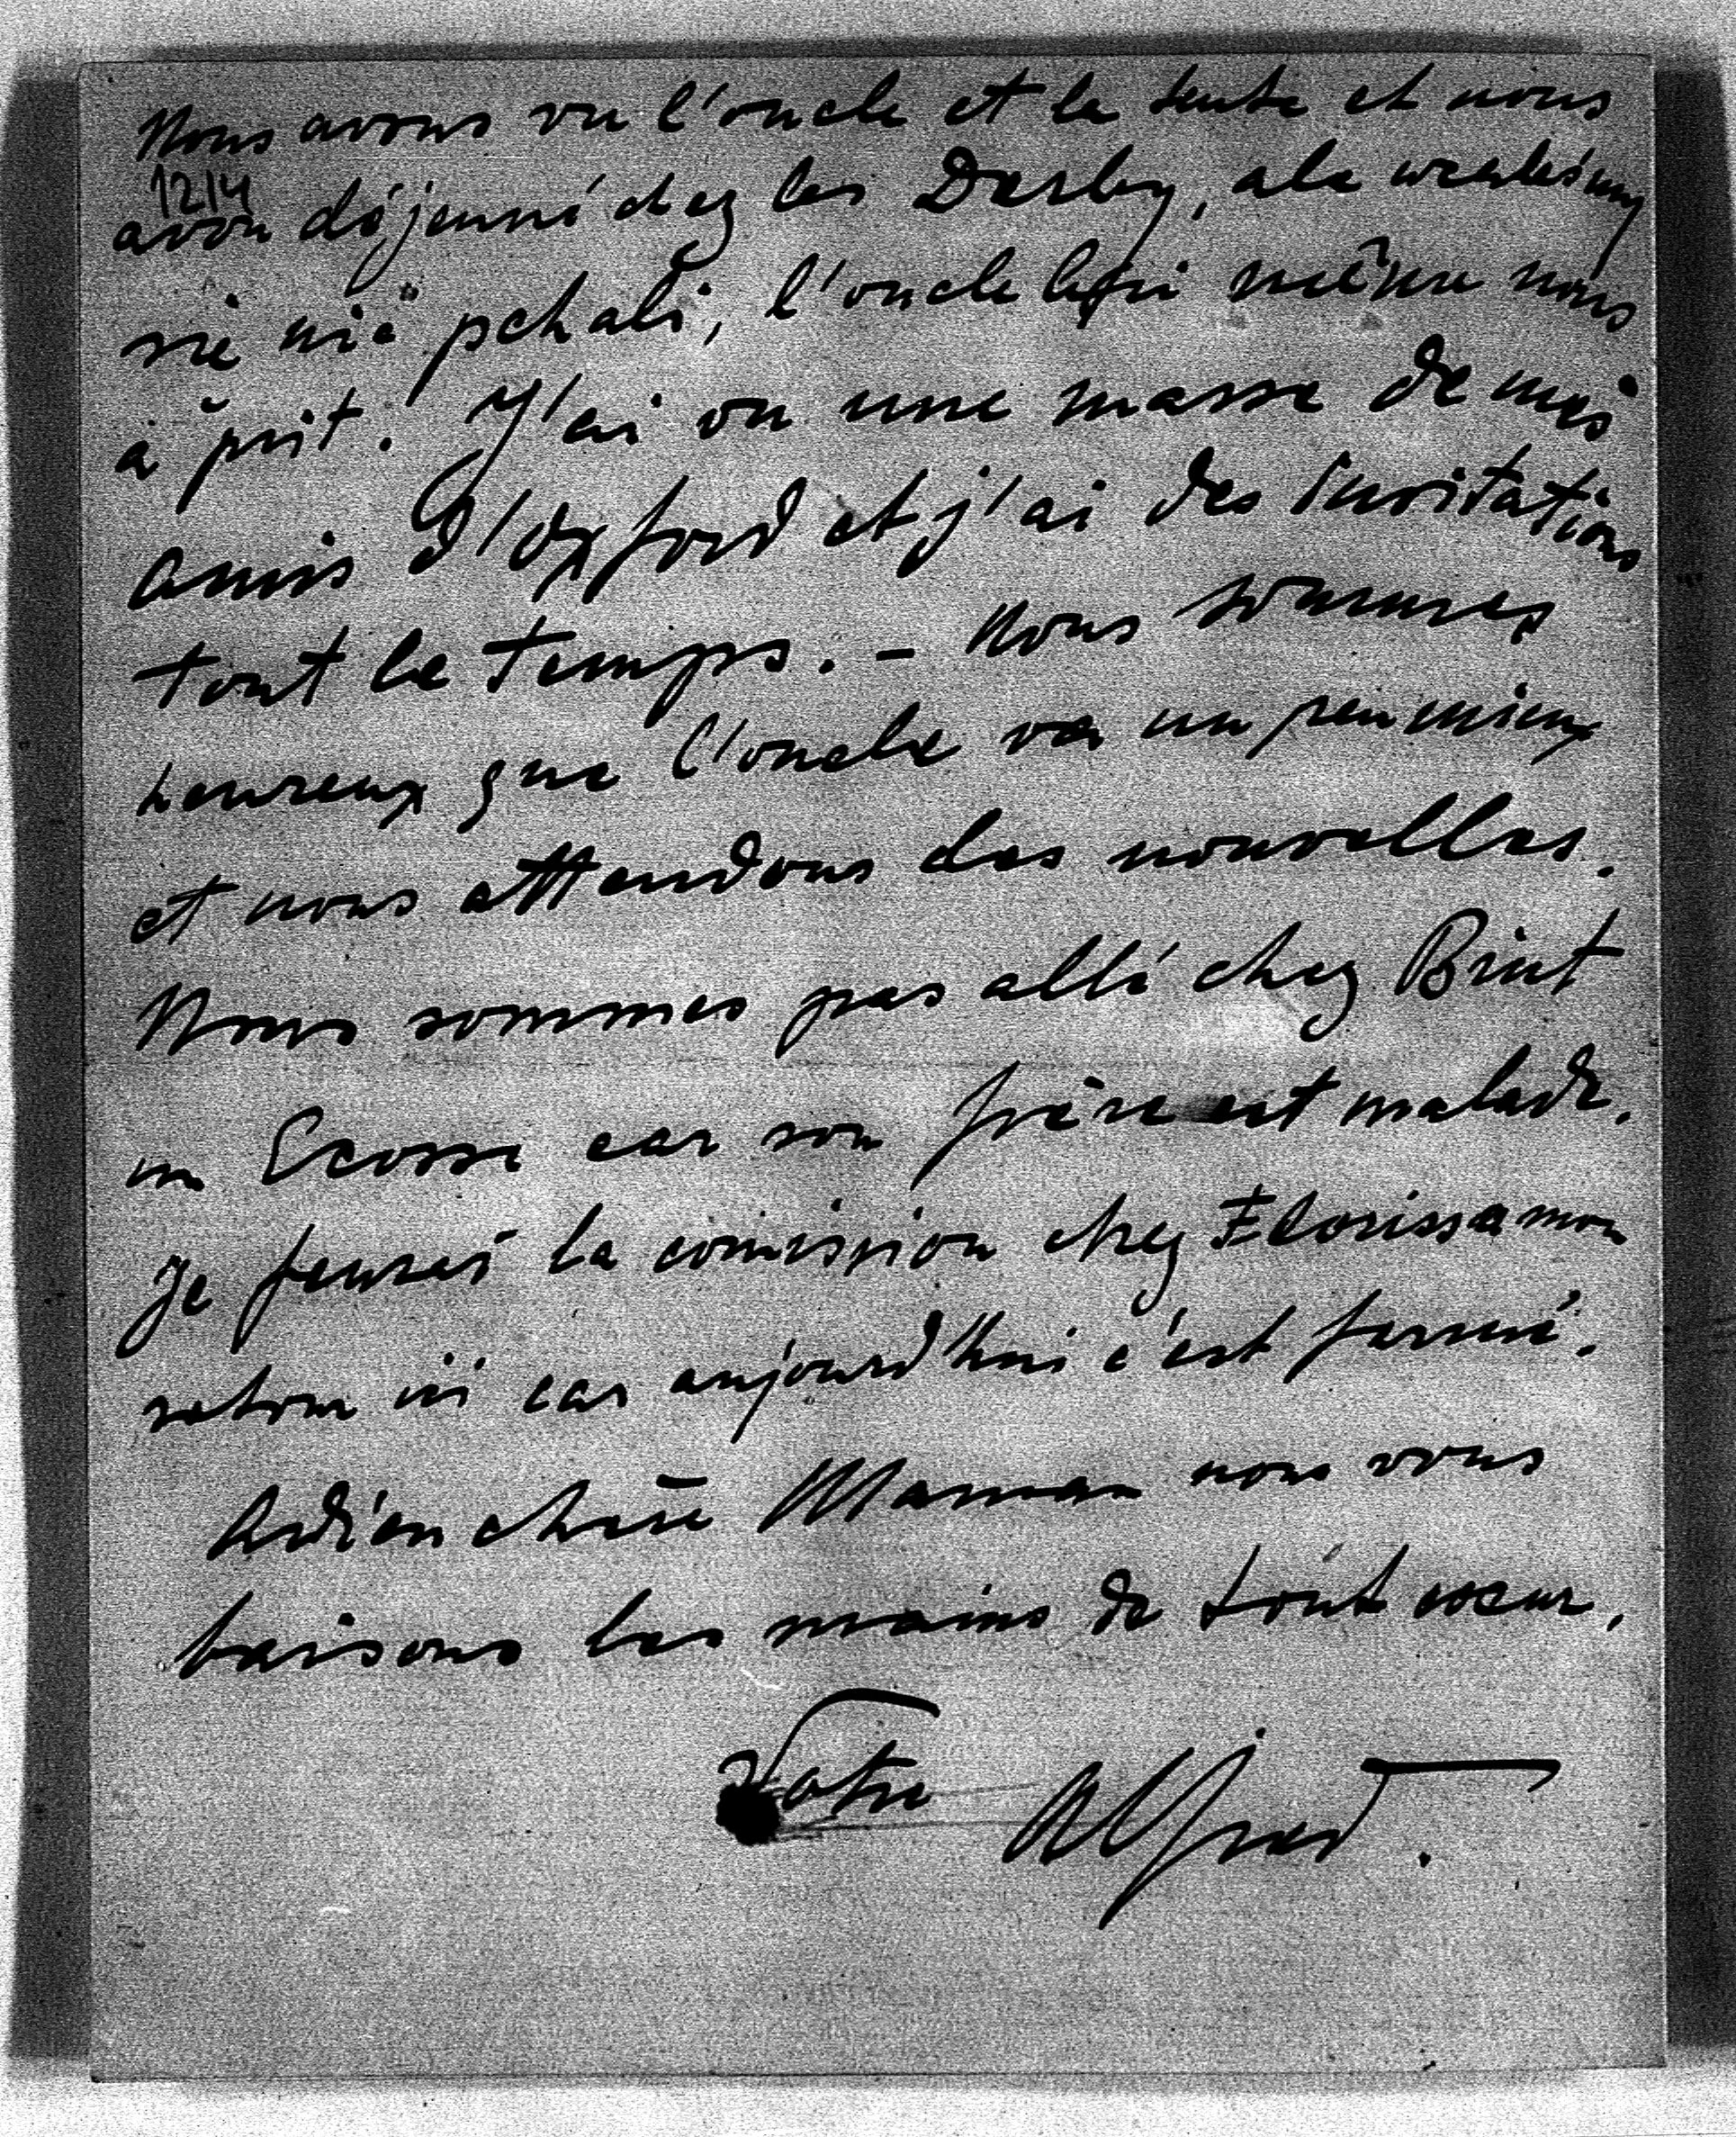 Nous avons vu l'oncle et la tente et nous
1214
avon déjeunné chez les Darby, ale
się nie pchali, l'oncle lui même nous
à prit. J'ai vu une masse de mes
amis d'Oxford et j'ai des invitations
tout le temps. – Nous sommes
heureux que l'oncle va un peu mieux
et nous attendons des nouvelles.
Nous sommes pas allé chez
en Ecosse car son frère est malade.
Je ferrai la comission chez Floris
retour ici car aujourd'hui c'est fermé.
Adieu chère Maman nous vous
baisons les mains de tout coeur,
Votre Alfred.